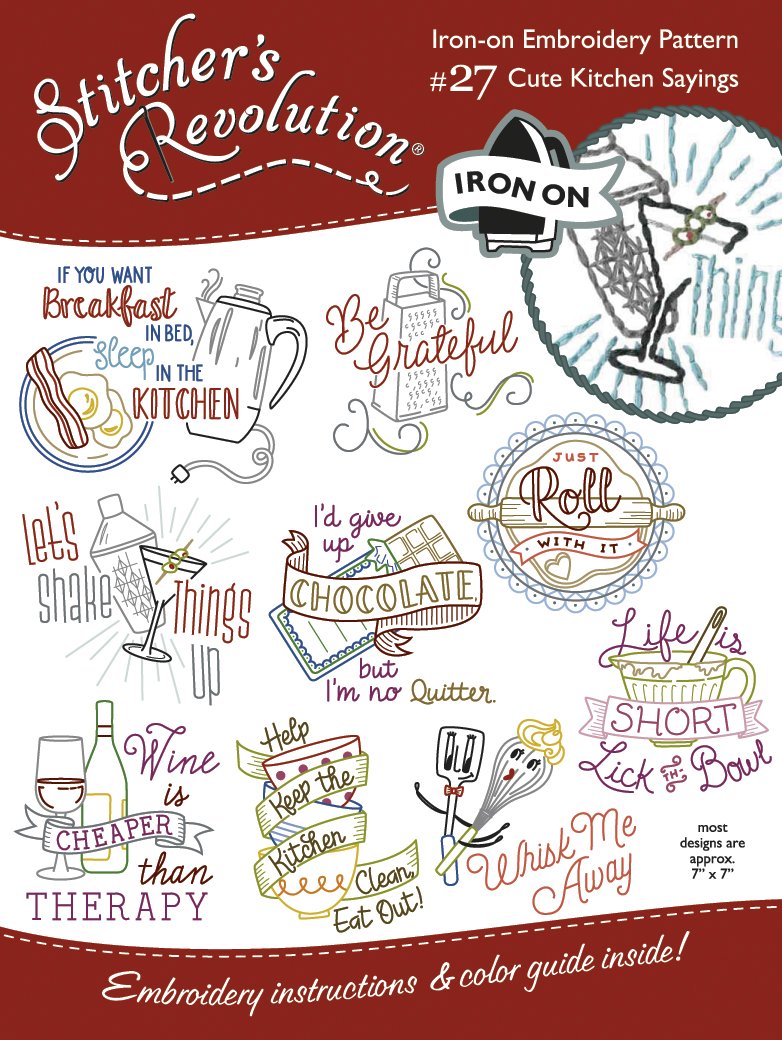 Stitcher's
Revolution®
Iron-on Embroidery Pattern
#27 Cute Kitchen Sayings
IRON ON
Thing
IF YOU WANT
Breakfast
IN BED,
Sleep
IN THE
KITCHEN
Be
Grateful
JUST
Roll
WITH IT
Let's
shake
Things
up
I'd give
up
CHOCOLATE,
but
I'm no Quitter.
Life is
SHORT
Lick THE Bowl
Wine
is
CHEAPER
than
THERAPY
Help
Keep the
Kitchen
Clean,
Eat Out!
Whisk Me
Away
most
designs are
approx.
7" x 7"
Embroidery instructions & color guide inside!